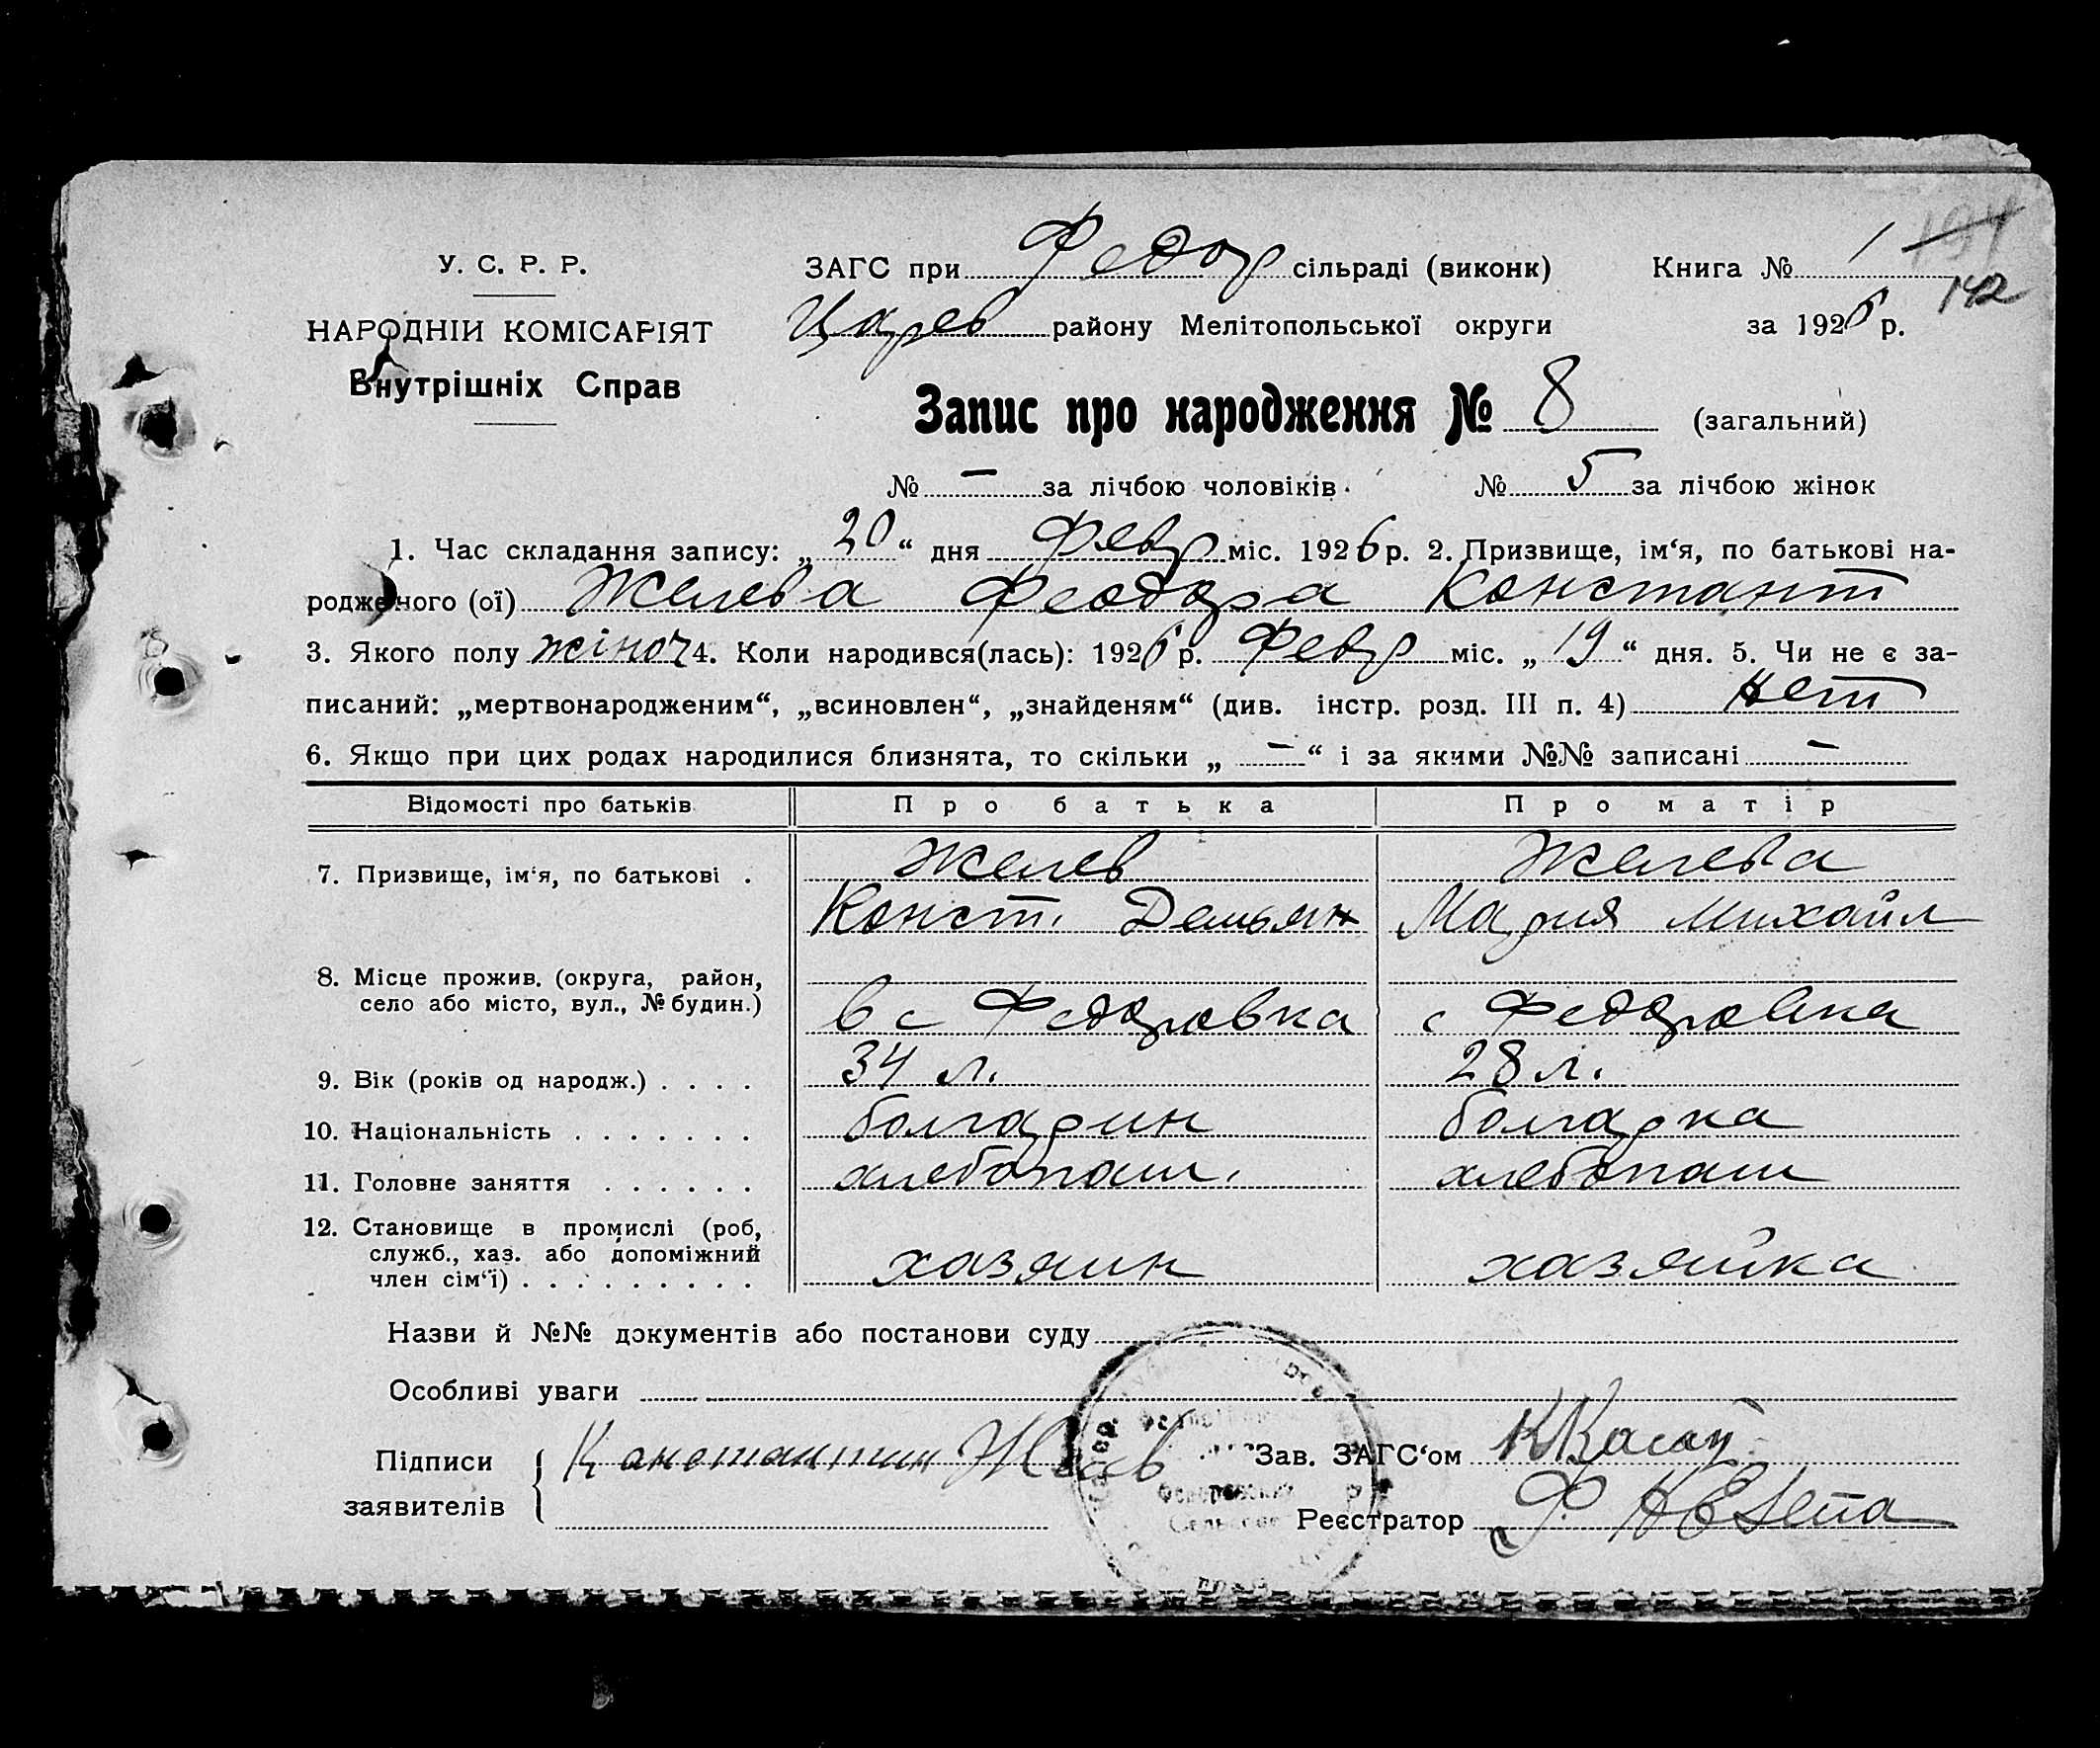 194
142
У. С. Р. Р.
НАРОДНІЙ КОМІСАРІЯТ
Внутрішніх Справ
ЗАГС при Федор сільраді (виконк) Книга № 1
Царев району Мелітопольської округи за 1926 р.
Запис про народження № 8 (загальний)
№ — за лічбою чоловіків. № 5 за лічбою жінок
1. Час складання запису: „20“ дня Февр міс. 1926 р. 2. Призвище, ім‘я, по батькові на-
родженого (ої) Желева Феодора Констант
3. Якого полу жіноч 4. Коли народився(лась): 1926 р. Февр міс. „19“ дня. 5. Чи не є за-
писаний: „мертвонародженим“, „всиновлен“, „знайденям“ (див. інстр. розд. III п. 4) нет
6. Якщо при цих родах народилися близнята, то скільки „—“ і за якими №№ записані —
Відомості про батьків Про батька Про матір
7. Призвище, ім‘я, по батькові . Желев Желева
Конст. Демьян Мария Михайл
8. Місце прожив. (округа, район,
село або місто, вул., № будин.) в с Федоровка с Федоровка
9. Вік (років од народж.) . . . . 34 л. 28 л.
10. Національність . . . . . . . болгарин болгарка
11. Головне заняття . . . . . . хлебопаш. хлебопаш
12. Становище в промислі (роб,
служб., хаз. або допоміжний
член сім‘ї) . . . . . . . . . хазяин хазяйка
Назви й №№ документів або постанови суду
Особливі уваги
Підписи Константин Зав. ЗАГС‘ом
заявителів Реєстратор Ф.